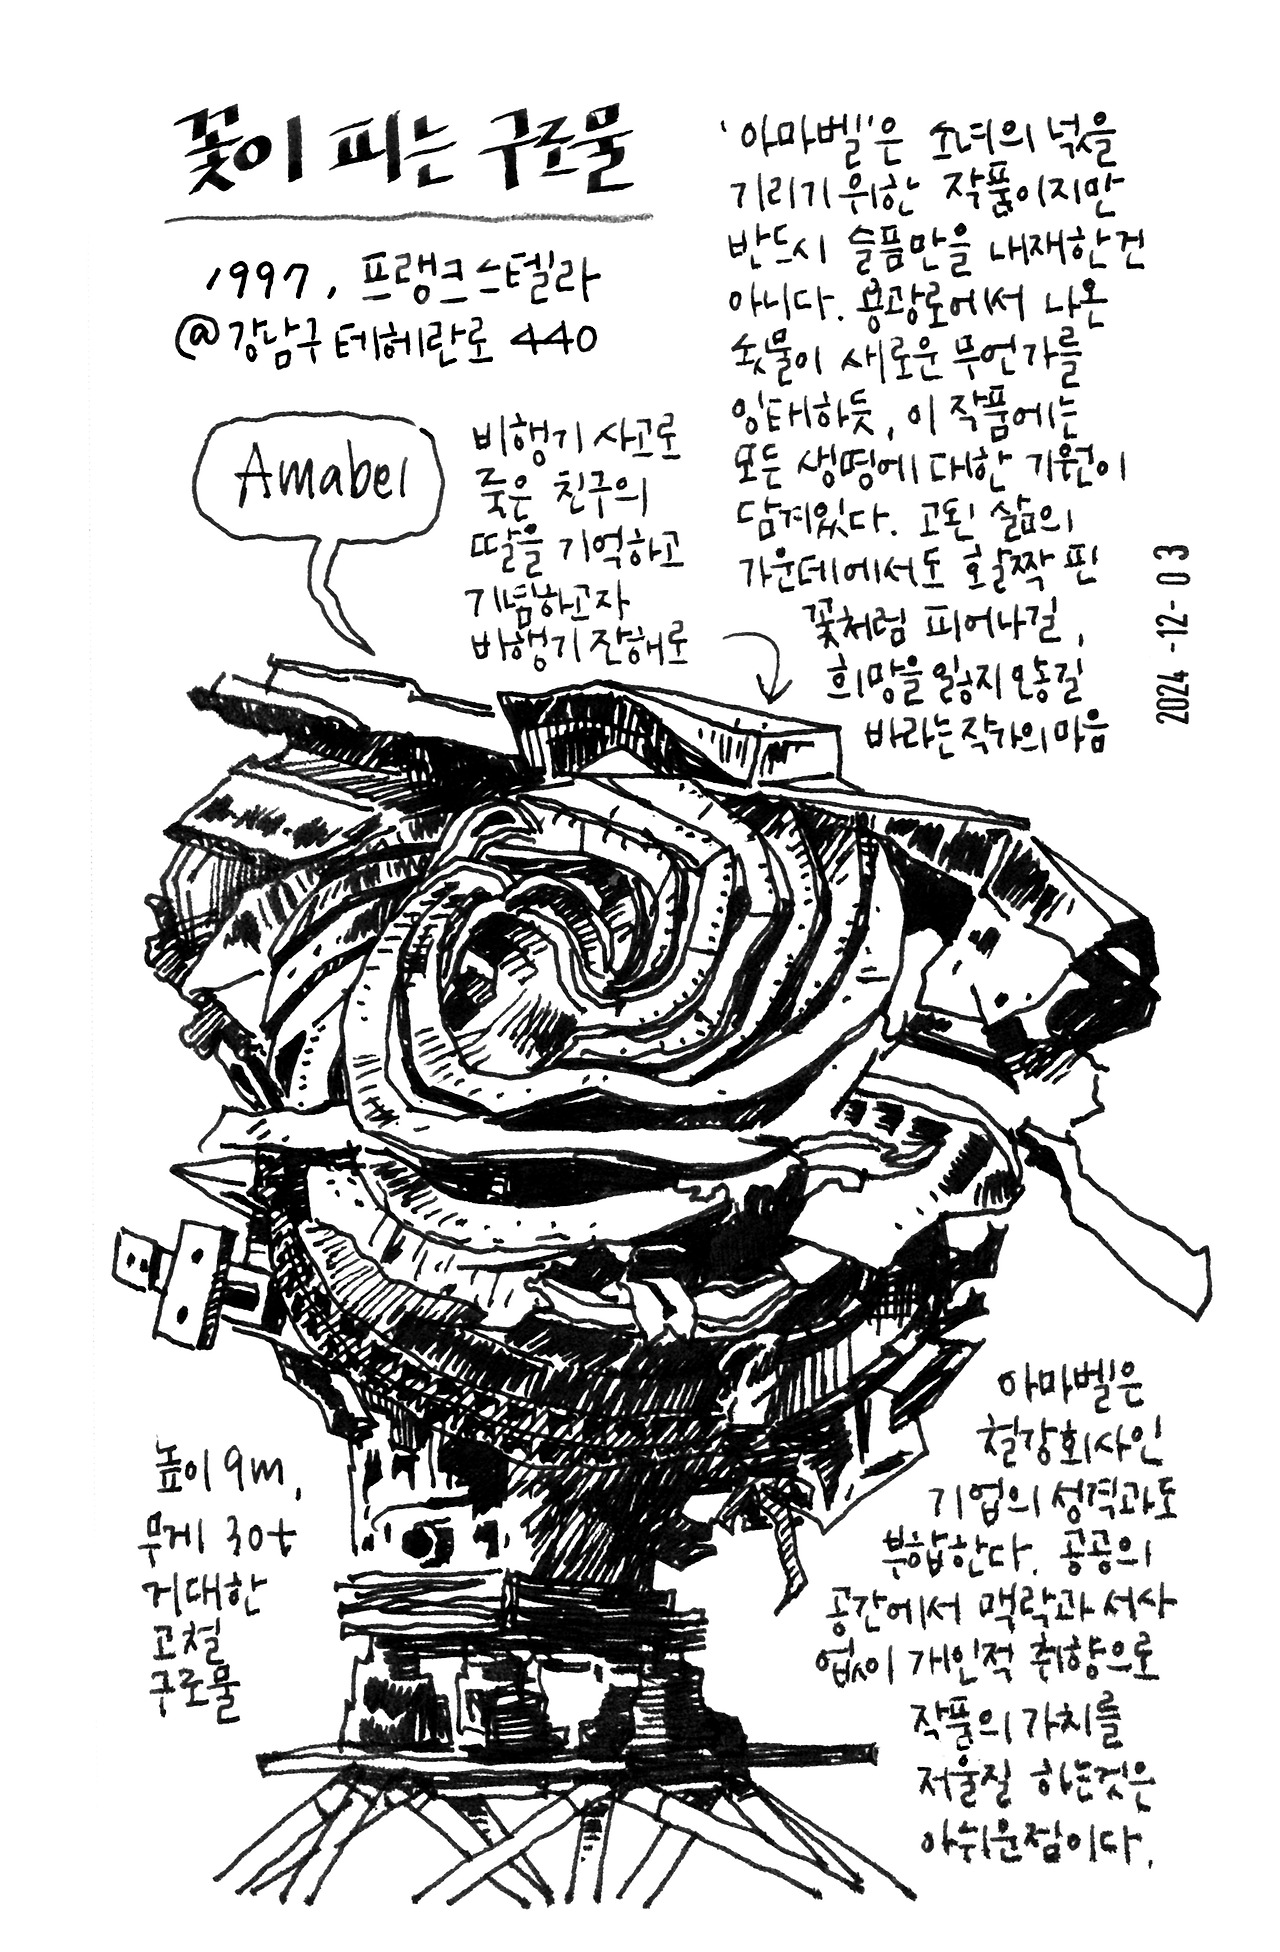 꽃이 피는 구로물
1997, 프랭크스텔라
@강남구 테헤란로 440
Amabel
비행기 사고로
죽은 친구의
딸을 기억하고
기념하고자
비행기 잔해로
'아마벨'은 소녀의 넋을
기리기 위한 작품이지만
반드시 슬픔만을 내재한건
아니다. 용광로에서 나온
쇳물이 새로운 무언가를
잉태하듯, 이 작품에는
모든 생명에 대한 기원이
담겨있다. 고된 삶의
가운데에서도 활짝 핀
꽃처럼 피어나길,
희망을 잃지 않길
바라는 작가의 마음
2024-12-03
높이 9m,
무게 30t
거대한
고철
구로물
아마벨은
철강회사인
기업의 성격과도
부합한다. 공공의
공간에서 맥락과 서사
없이 개인적 취향으로
작품의 가치를
저울질 하는것은
아쉬운점이다.